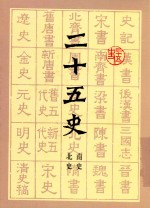 二十五史
南史
北史
史記
漢書
後漢書
三國志
晉書
宋書
南齊書
梁書
陳書
魏書
舊唐書
新唐書
舊五代史
新五代史
宋史
遼史
金史
元史
明史
清史稿